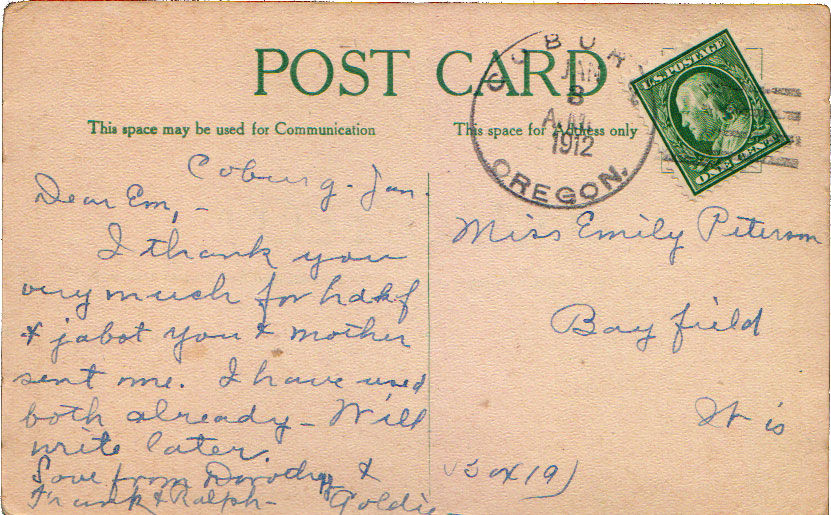 POST CARD
This space may be used for Communication
This space for Address only
COBURG
JAN
8
A.M.
1912
OREGON.
U.S. POSTAGE
ONE CENT
Coburg - Jan.
Dear Em, -
I thank you
very much for hdkf
& jabot you & mother
sent me. I have used
both already - Will
write later.
Love from Dorothy &
Frank & Ralph - Goldie -
Miss Emily Peterson
Bayfield
Wis
Box 19)